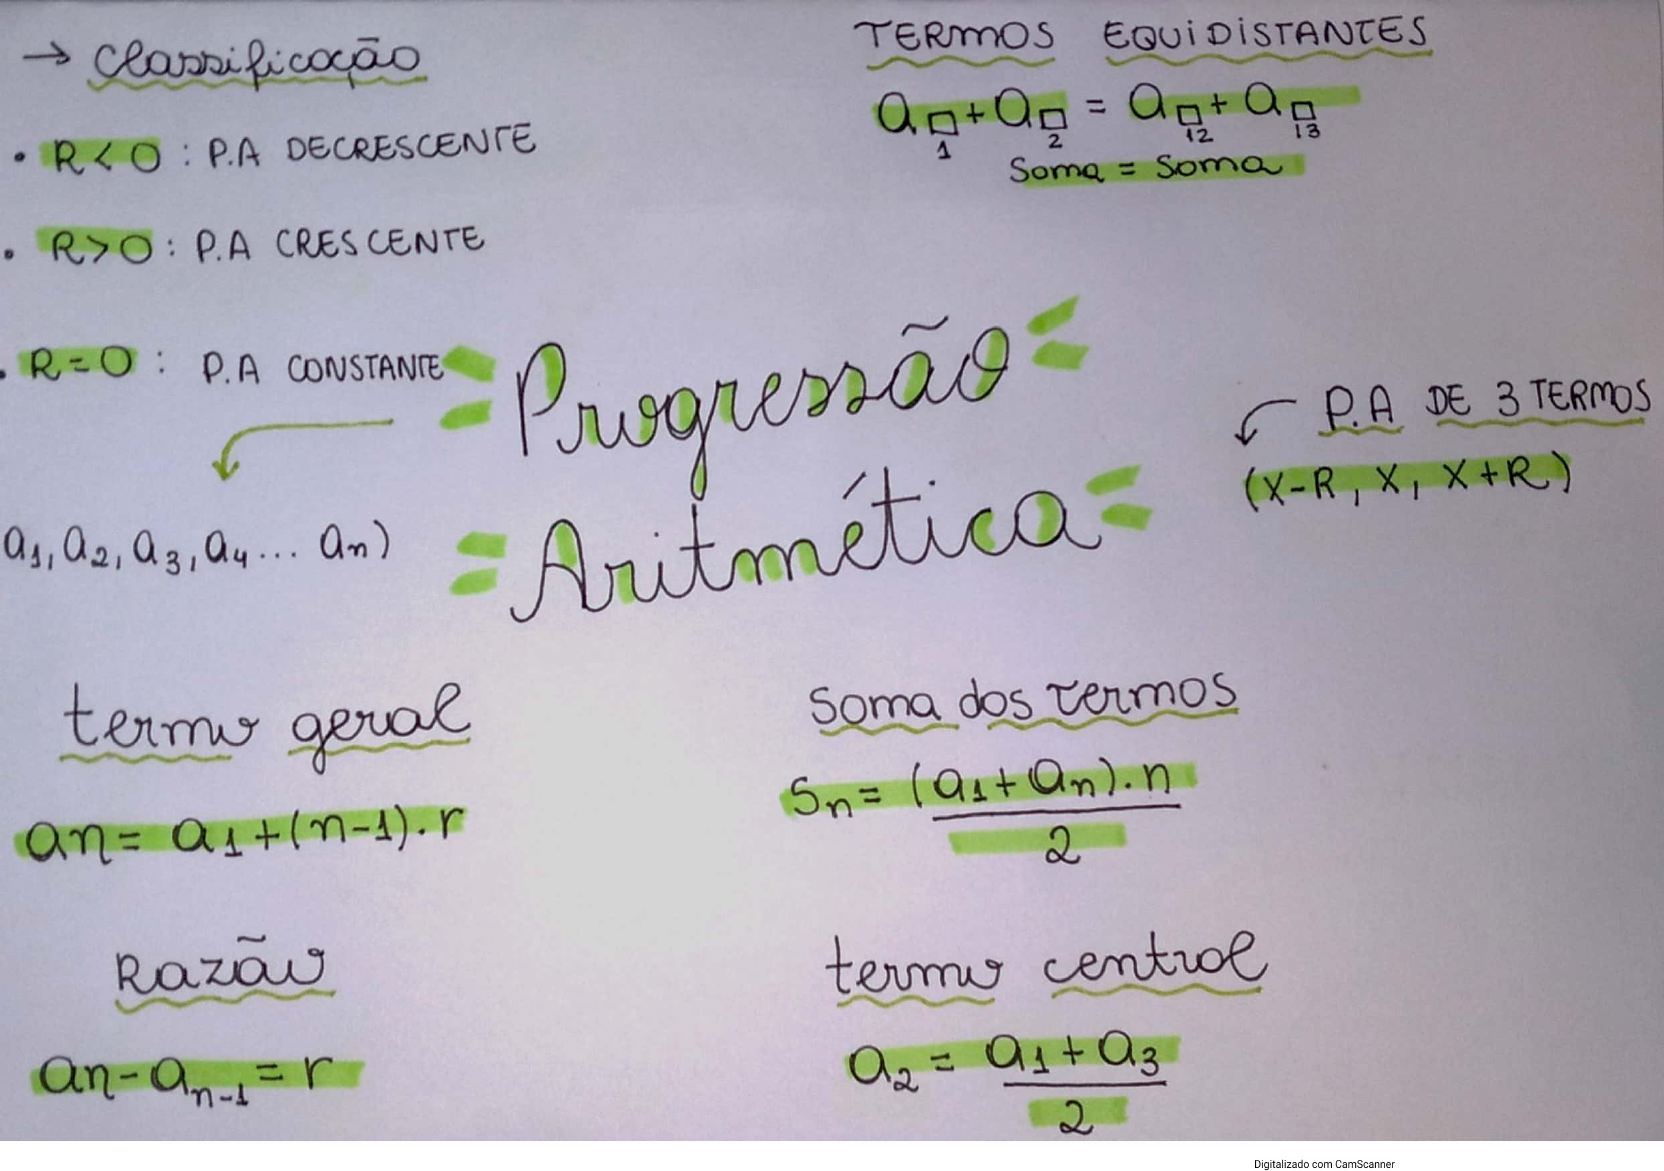 → Classificação
• R < 0 : P.A DECRESCENTE
• R > 0 : P.A CRESCENTE
• R = 0 : P.A CONSTANTE
a₁, a₂, a₃, a₄ ... an)
TERMOS EQUIDISTANTES
a□ + a□ = a□ + a□
1 2 12 13
Soma = Soma
Progressão
Aritmética
P.A DE 3 TERMOS
(X-R, X, X+R)
termo geral
an = a₁ + (n-1). r
Razão
an - aₙ₋₁ = r
Soma dos termos
Sn = (a₁ + an). n
2
termo central
a₂ = a₁ + a₃
2
Digitalizado com CamScanner